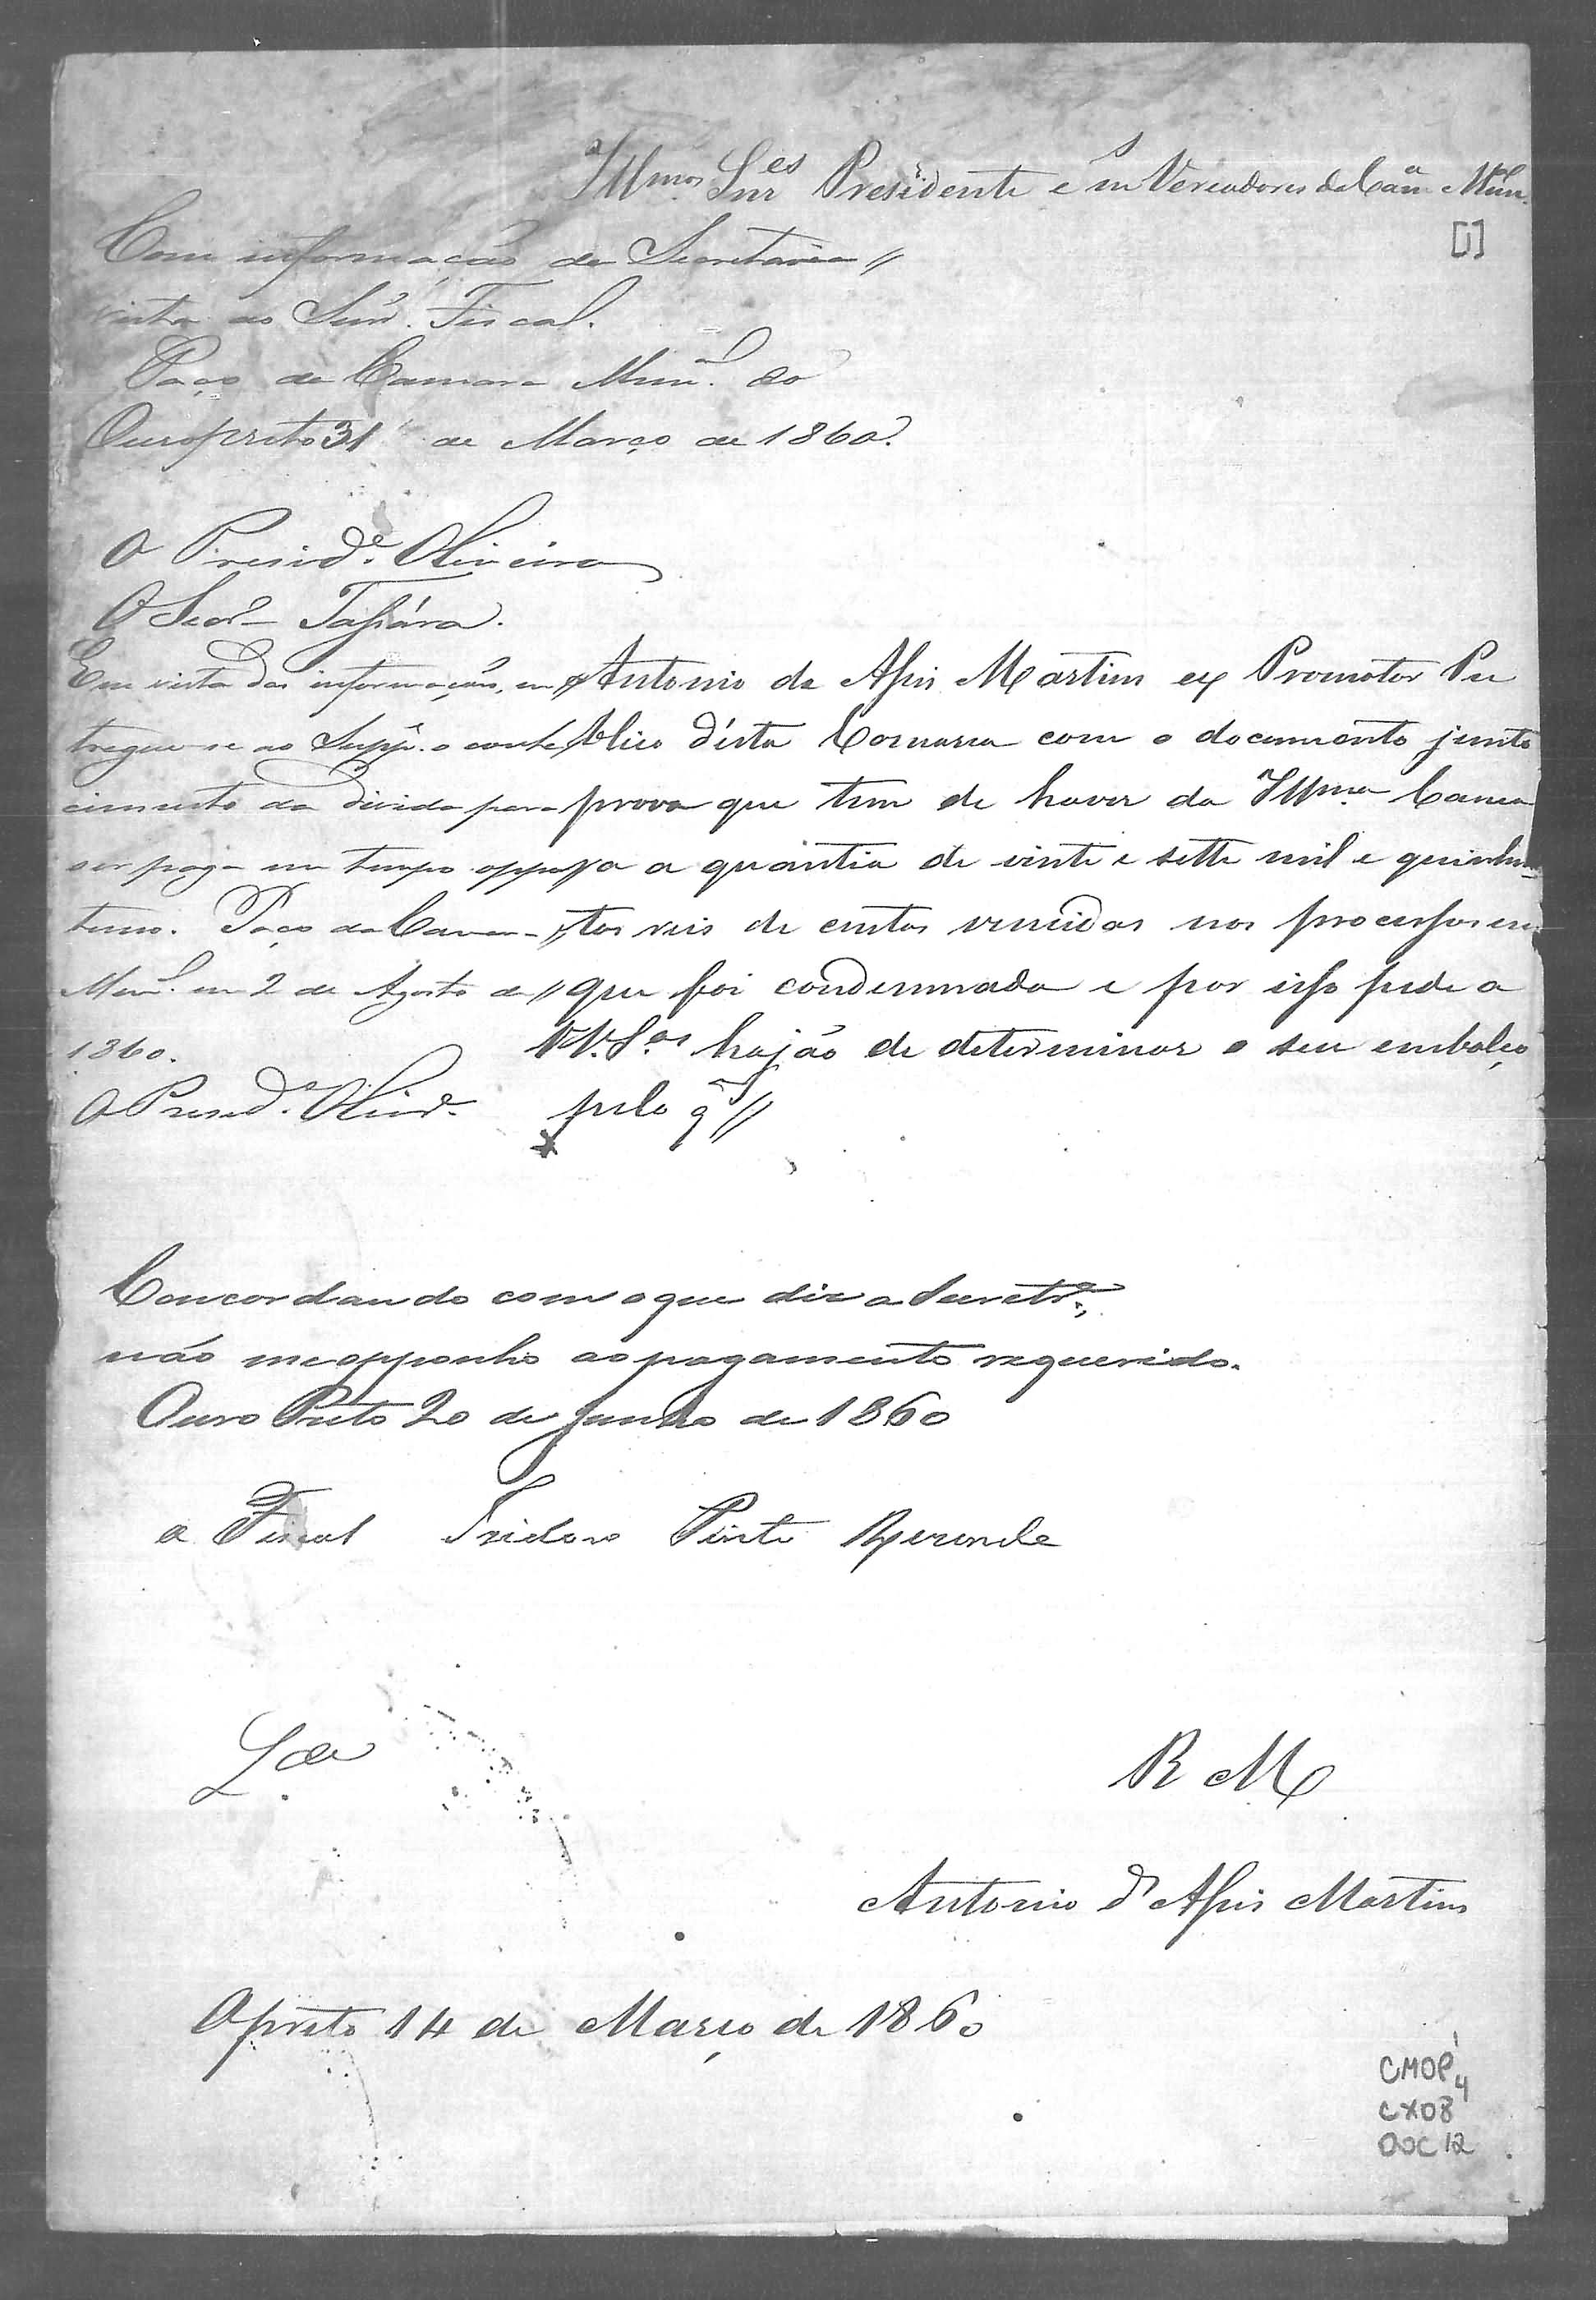 Illmos. Snres Presidente e Vereadores da Camª Mun.
[1]
Com informação da Secretaria //
vista ao Snr. Fiscal.
Paço da Camara Munal. do
Ouropreto 31 de Março de 1860.
O Preside. Oliveira
O Secro
Em vista das informações, en //
tregue-se ao Suppe. o conhe //
cimento da divida para
ser paga em tempo oppor
tuno. Paço da Camar- //
Munal. em 2 de Agosto de //
1860.
O Preside. Olivra.
Antonio de Assis Martins ex Promotor Pu
blico d'ésta Comarca com o documento junto
prova que tem de haver da Illma. Cama
ra a quantia de vinte e sette mil e quinhen
tos reis de custas vencidas nos processos em
que foi condemnada e por isso pede a
VV. Sas. hajão de determinar o seu embolço
pelo q //
Concordando com o que diz a Secretrª.,
não me opponho ao pagamento requerido.
Ouro Preto 20 de Junho de 1860
O Fiscal Izidoro Pinto Rezende
R M
Antonio d' Assis Martins
Opreto 14 de Março de 1860
CMOP 4
CX08
DOC 12